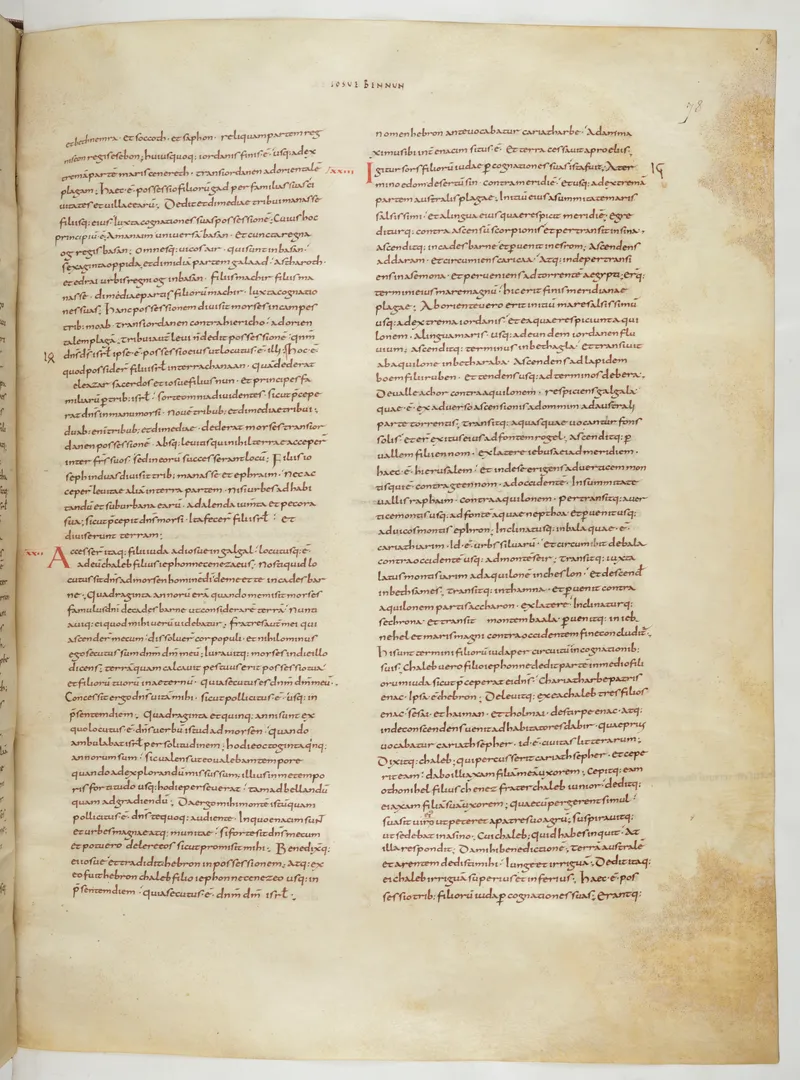 IOSUE BENNUN
78
et bethnemra · et soccoth · et saphon · reliquam partem reg
ni seon regis esebon; huius quoq: iordanis finis ē · usq: ad ex
tremā partē maris cenereth · trans iordanen ad orientalē
plagam; Haec ē possessio filiorū gad per familias suas ci
uitates et uillae earū; Dedit et dimediae tribui manasse
filiisq: eius iuxta cognationes suas possessionē; Cuius hoc
principiū ē; A manaim uniuersā basan · et cuncta regna
og regis basan; omnesq: uicos air · qui sunt in basan ·
sexaginta oppida, et dimidiā partem galaad · astharoth ·
et edrai urbis regni og in basan · filiis machir filii ma
nasse · dimediae partis filiorū machir · iuxta cognatio
nes suas; Hanc possessionem diuisit moyses in campes
trib: moab · trans iordanen contra hiericho · ad orien
talem plagā; tribui autē leui n̄ dedit possessionē · qnm̄
dn̄s d̄s isrl̄ ipse ē possessio eius ut locutus ē illi; Hoc ē
quod possider filii isrl̄ in terra chanaan · quā dederat
eleazar sacerdos et iosue filius nun · et principes fa
miliarū p̄ trib: isrl̄ · sorte omnia diuidentes · sicut p̄cepe
rat dn̄s in manu moysi · noue tribub; et dimediae tribui;
duab; eni tribub; et dimediae · dederat moyses trans ior
danen possessionē · absq: leuitis qui nihil terrae acceper
inter fr̄s suos, sed in eorū successerant locū; Filii io
seph in duas diuisi trib; manasse et ephraim · nec ac
ceper leuitae aliā in terra partem · nisi urbes ad habi
tandū et suburbana earū · ad alenda iumta et pecora
sua; sicut p̄cepit dn̄s moysi · ita fecer filii isrl̄ · et
diuiserunt terram;
xxii
Accesser itaq: filii iuda ad iosue in galgal · locutusq: ē
ad eū chaleb filius iephonne cenezaeus; Nosti quid lo
cutus sit dn̄s ad moysen hominē dī de me et te in cades bar
ne; Quadraginta annorū erā quando me misit moyses
famulus dn̄i de cades barne ut considerarē terrā · nunti
auiq: ei quod mihi uerū uidebatur; fratres autē mei qui
ascender mecum · dissoluer cor populi · et nihilominus
ego secutus sum dnm̄ dm̄ meū; Iurauitq: moyses in die illo
dicens; terrā quam calcauit pes tuus erit possessio tua
et filiorū tuorū in aeternū · quia secutus es dnm̄ dm̄ meū;
Concessit ergo dn̄s uitā mihi · sicut pollicitus ē · usq: in
p̄sentem diem; Quadraginta et quinq: anni sunt ex
quo locutus ē dn̄s uerbū istud ad moysen · quando
ambulabat isrl̄ per solitudinem; hodie octoginta q̄nq;
annorum sum · sic ualens ut eo ualebam tempore
quando ad explorandū missus sum, illius in me tempo
ris fortitudo usq: hodie perseuerat · tam ad bellandū
quam ad gradiendū; Da ergo mihi monte istū quam
pollicitus ē dn̄s te quoq: audiente · in quo enacim sunt
et urbes magnae atq: munitae · si forte sit dn̄s mecum
et potuero delere eos sicut promisit mihi; Benedixq;
ei iosue et tradidit hebron in possessionem; Atq: ex
eo fuit hebron chaleb filio iephonne cenezeo usq: in
p̄sentem diem · quia secutus ē · dnm̄ dm̄ isrl̄;
nomen hebron ante uocabatur cariatharbe · Adam ma
ximus ibi int̄ enacim situs ē · Et terra cessauit a proeliis;
xxiii
Igitur sors filiorū iudae p̄ cognationes suas ista fuit; A ter
mino edom desertū sin · contra meridiē · et usq: ad extremā
partem australis plagae; Initiū eius a summitate maris
salsissimi · et a lingua eius quae respicit meridiē; egre
diturq: contra ascensū scorpionis et pertransit in sina ·
ascenditq: in cades barne et peruenit in esrom; Ascendens
addaram · et circumiens caricaa · Atq: inde pertransi
ens in asemona · et perueniens ad torrentē aegypti; erq:
termini eius mare magnū; hic erit finis meridianae
plagae; Ab oriente uero erit initiū mare salsissimū
usq: ad extrema iordanis · et ea quae respiciunt aqui
lonem · A lingua maris · usq: ad eundem iordanen flu
uium; ascenditq: terminus in bethagla · et transiuit
ab aquilone in betharaba · Ascendens ad lapidem
boem filii ruben · Et tendens usq: ad terminos debera;
De ualle achor contra aquilonem · respiciens galgala
quae ē ex aduerso ascensionis adommim ad australi
parte torrentis; transitq: aquas quae uocantur fons
solis · et er exitus eius ad fontem rogel; ascenditq: p̄
uallem filii ennom · ex latere iebusei ad meridiem ·
haec ē hierusalem · et inde se erigens ad uerticem mon
tis qui ē contra geennom · ad occidentē · in summitate
uallis raphaim · contra aquilonem · pertransitq: a uer
tice montis usq: ad fontē aquae nepthoa · et peruenit usq;
ad uicos montis ephron; Inclinaturq: in bala quae ē
cariathiarim · id ē urbs siluarū · et circumit de bala
contra occidentē usq: ad monte seir; transitq: iuxta
latus montis iarim ad aquilonē in cheslon · et descend
in bethsames; transitq: in thamna · et peruenit contra
aquilonem partis accharon · ex latere · inclinaturq:
sechrona · et transit montem baala p̄uenitq: in ieb
nehel et maris magni contra occidentem fine concluditr;
Hi sunt termini filiorū iuda per circuitū in cognationib;
suis; chaleb uero filio iephonne dedit partē in medio fili
orum iuda sicut p̄ceperat ei dn̄s; Chariatharbe patris
enac · ipsa ē hebron; Deleuitq: ex ea chaleb tres filios
enac · sesai · et haiman · et tholmai · de stirpe enac · atq:
inde conscendens uenit ad habitatores dabir · quae prius
uocabatur cariathsepher · id ē ciuitas litterarum;
Dixitq: chaleb; qui percusserit cariathsepher · et cepe
rit eam · dabo illi axam filiā meā uxorem; Cepitq: eam
othonihel filius chenez frater chaleb iunior · deditq:
ei axam filiā suā uxorem; quae cū pergerent simul ·
suasit uiro ut peteret a patre suo agrū; suspirauitq:
ut sedebat in asino; Cui chaleb; quid habes inquit · At
illa respondit; Da mihi benedictionē; terrā australē
et arentem dedisti mihi · iunge et irriguā; Dedit itaq:
ei chaleb irriguā superius et inferius; Haec ē pos
sessio trib; filiorū iuda p̄ cognationes suas; Erantq: